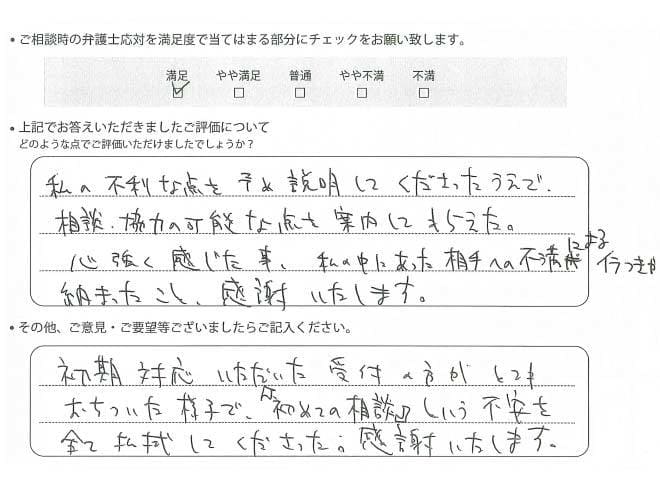 • ご相談時の弁護士応対を満足度で当てはまる部分にチェックをお願い致します。
満足 やや満足 普通 やや不満 不満
• 上記でお答えいただきましたご評価について
どのような点でご評価いただけましたでしょうか？
私の不利な点を予め説明してくださったうえで、
相談、協力の可能な点を案内してもらえた。
心強く感じた事、私の中にあった相手への不満による イラつきが
納まったこと、感謝いたします。
• その他、ご意見・ご要望等ございましたらご記入ください。
初期対応いただいた受付の方がとても
おちついた様子で、「初めての相談」という不安を
全て払拭してくださった。感謝いたします。